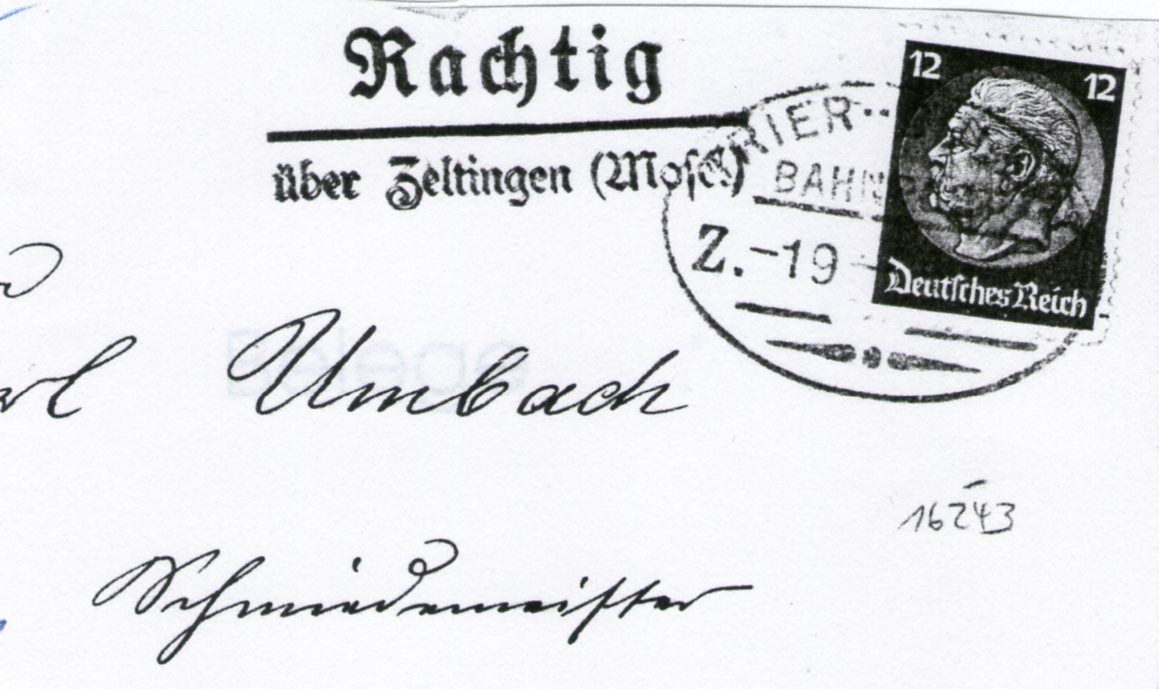 Rachtig
über Zeltingen (Mosel)
TRIER
BAHN
Z. - 19
12 12
Deutsches Reich
Umbach
16243
Schmiedemeister